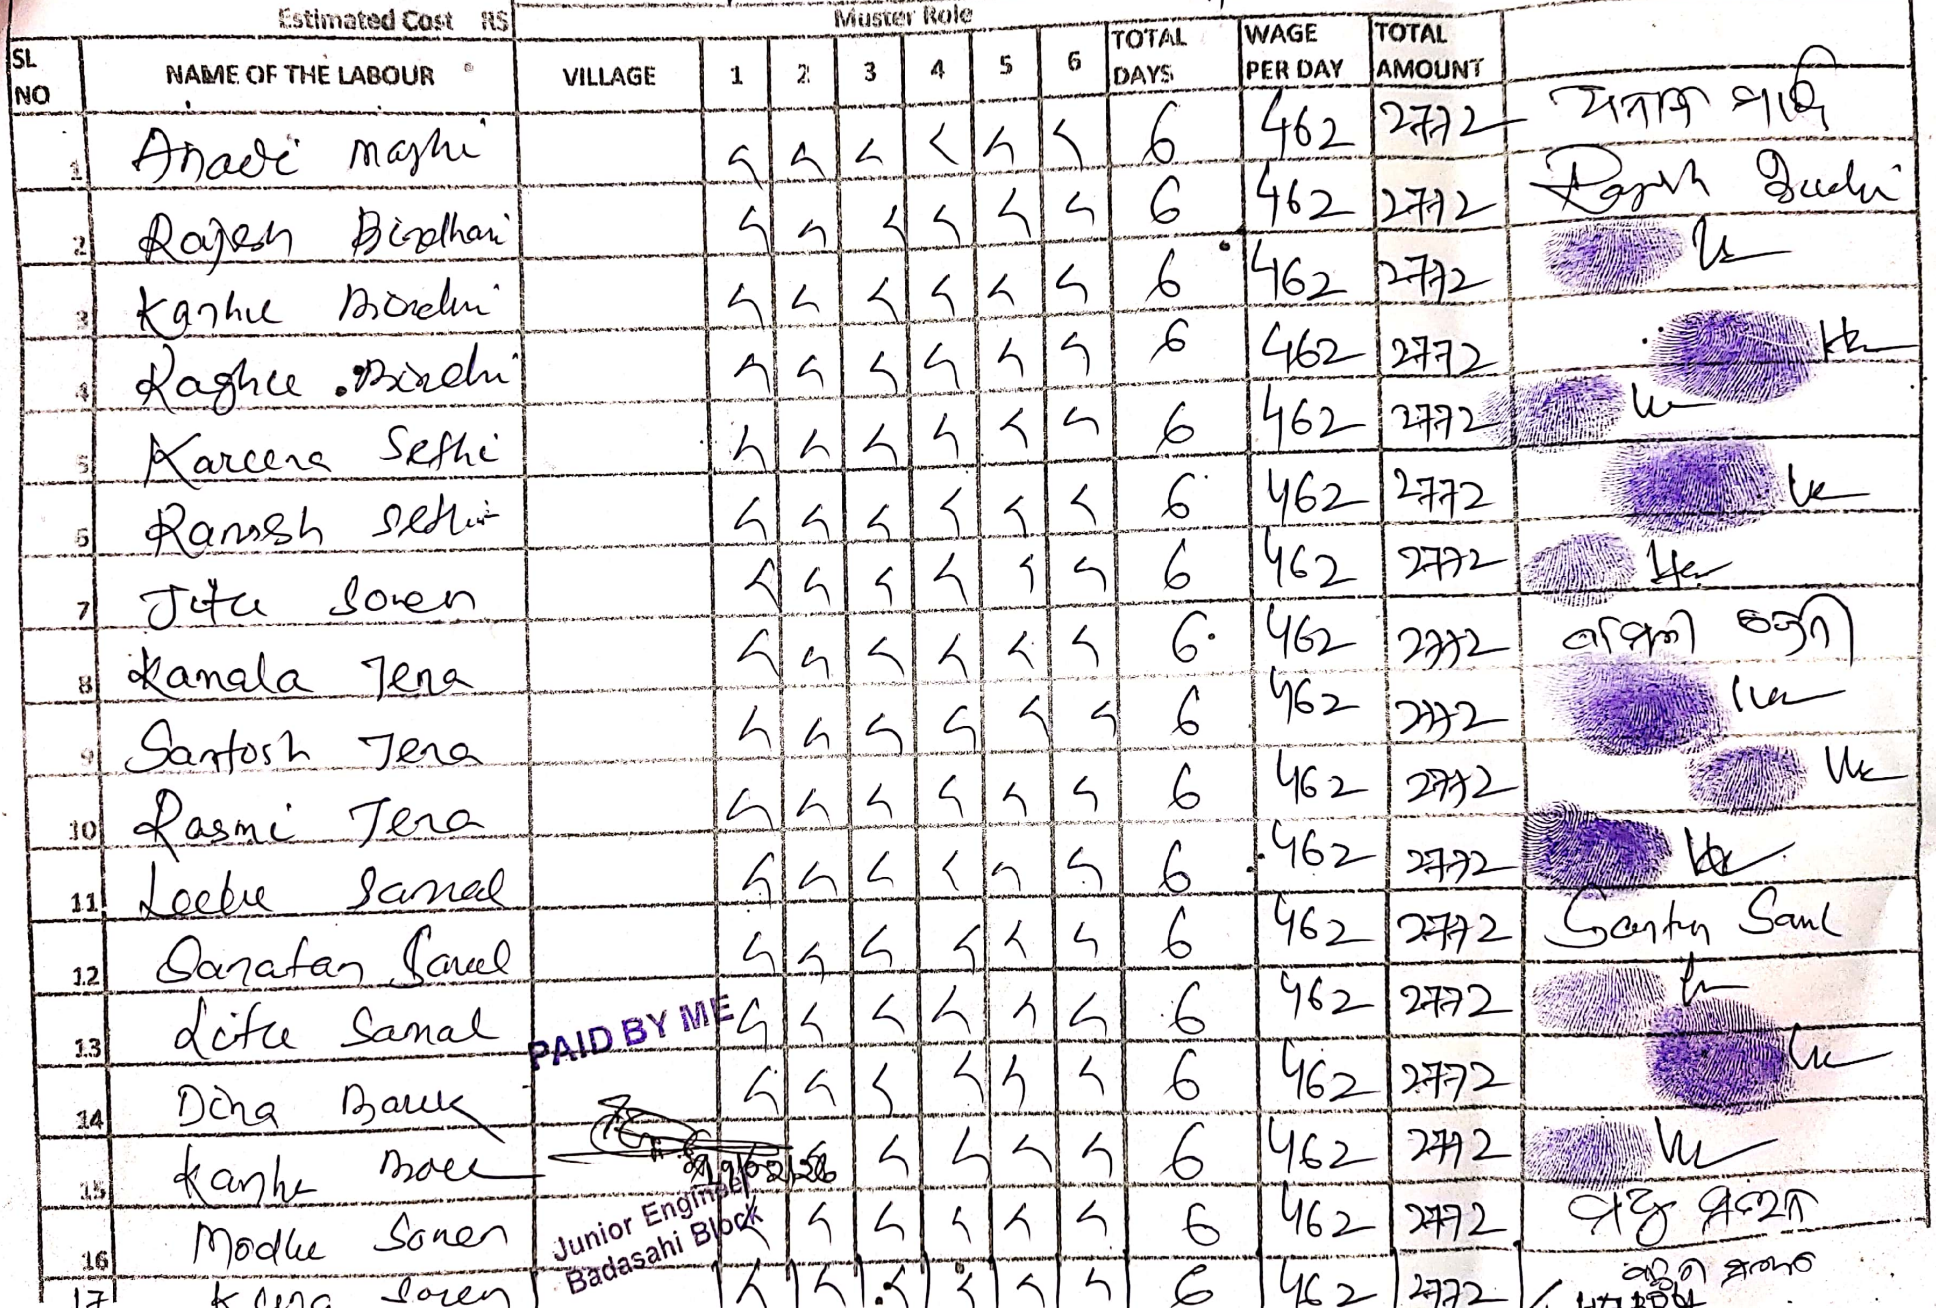 Estimated Cost RS Muster Role
SL NO NAME OF THE LABOUR VILLAGE 1 2 3 4 5 6 TOTAL DAYS WAGE PER DAY TOTAL AMOUNT
1 Anadi Majhi 6 462 2772
2 Rajesh Bindhani 6 462 2772 Rajesh
3 Kanhu Bindhi 6 462 2772
4 Raghu Bindhi 6 462 2772
5 Kareena Sethi 6 462 2772
6 Ramesh Sethi 6 462 2772
7 Jitu Soren 6 462 2772
8 Kamala Jena 6 462 2772
9 Santosh Jena 6 462 2772
10 Rasmi Jena 6 462 2772
11 Leebu Samal 6 462 2772
12 Sanatan Samal 6 462 2772
13 Litu Samal 6 462 2772
PAID BY ME
14 Dina Barik 6 462 2772
15 Kanhu 6 462 2772
16 Modhu Soren 6 462 2772
Junior Engineer
Badasahi Block
17 Soren 6 462 2772